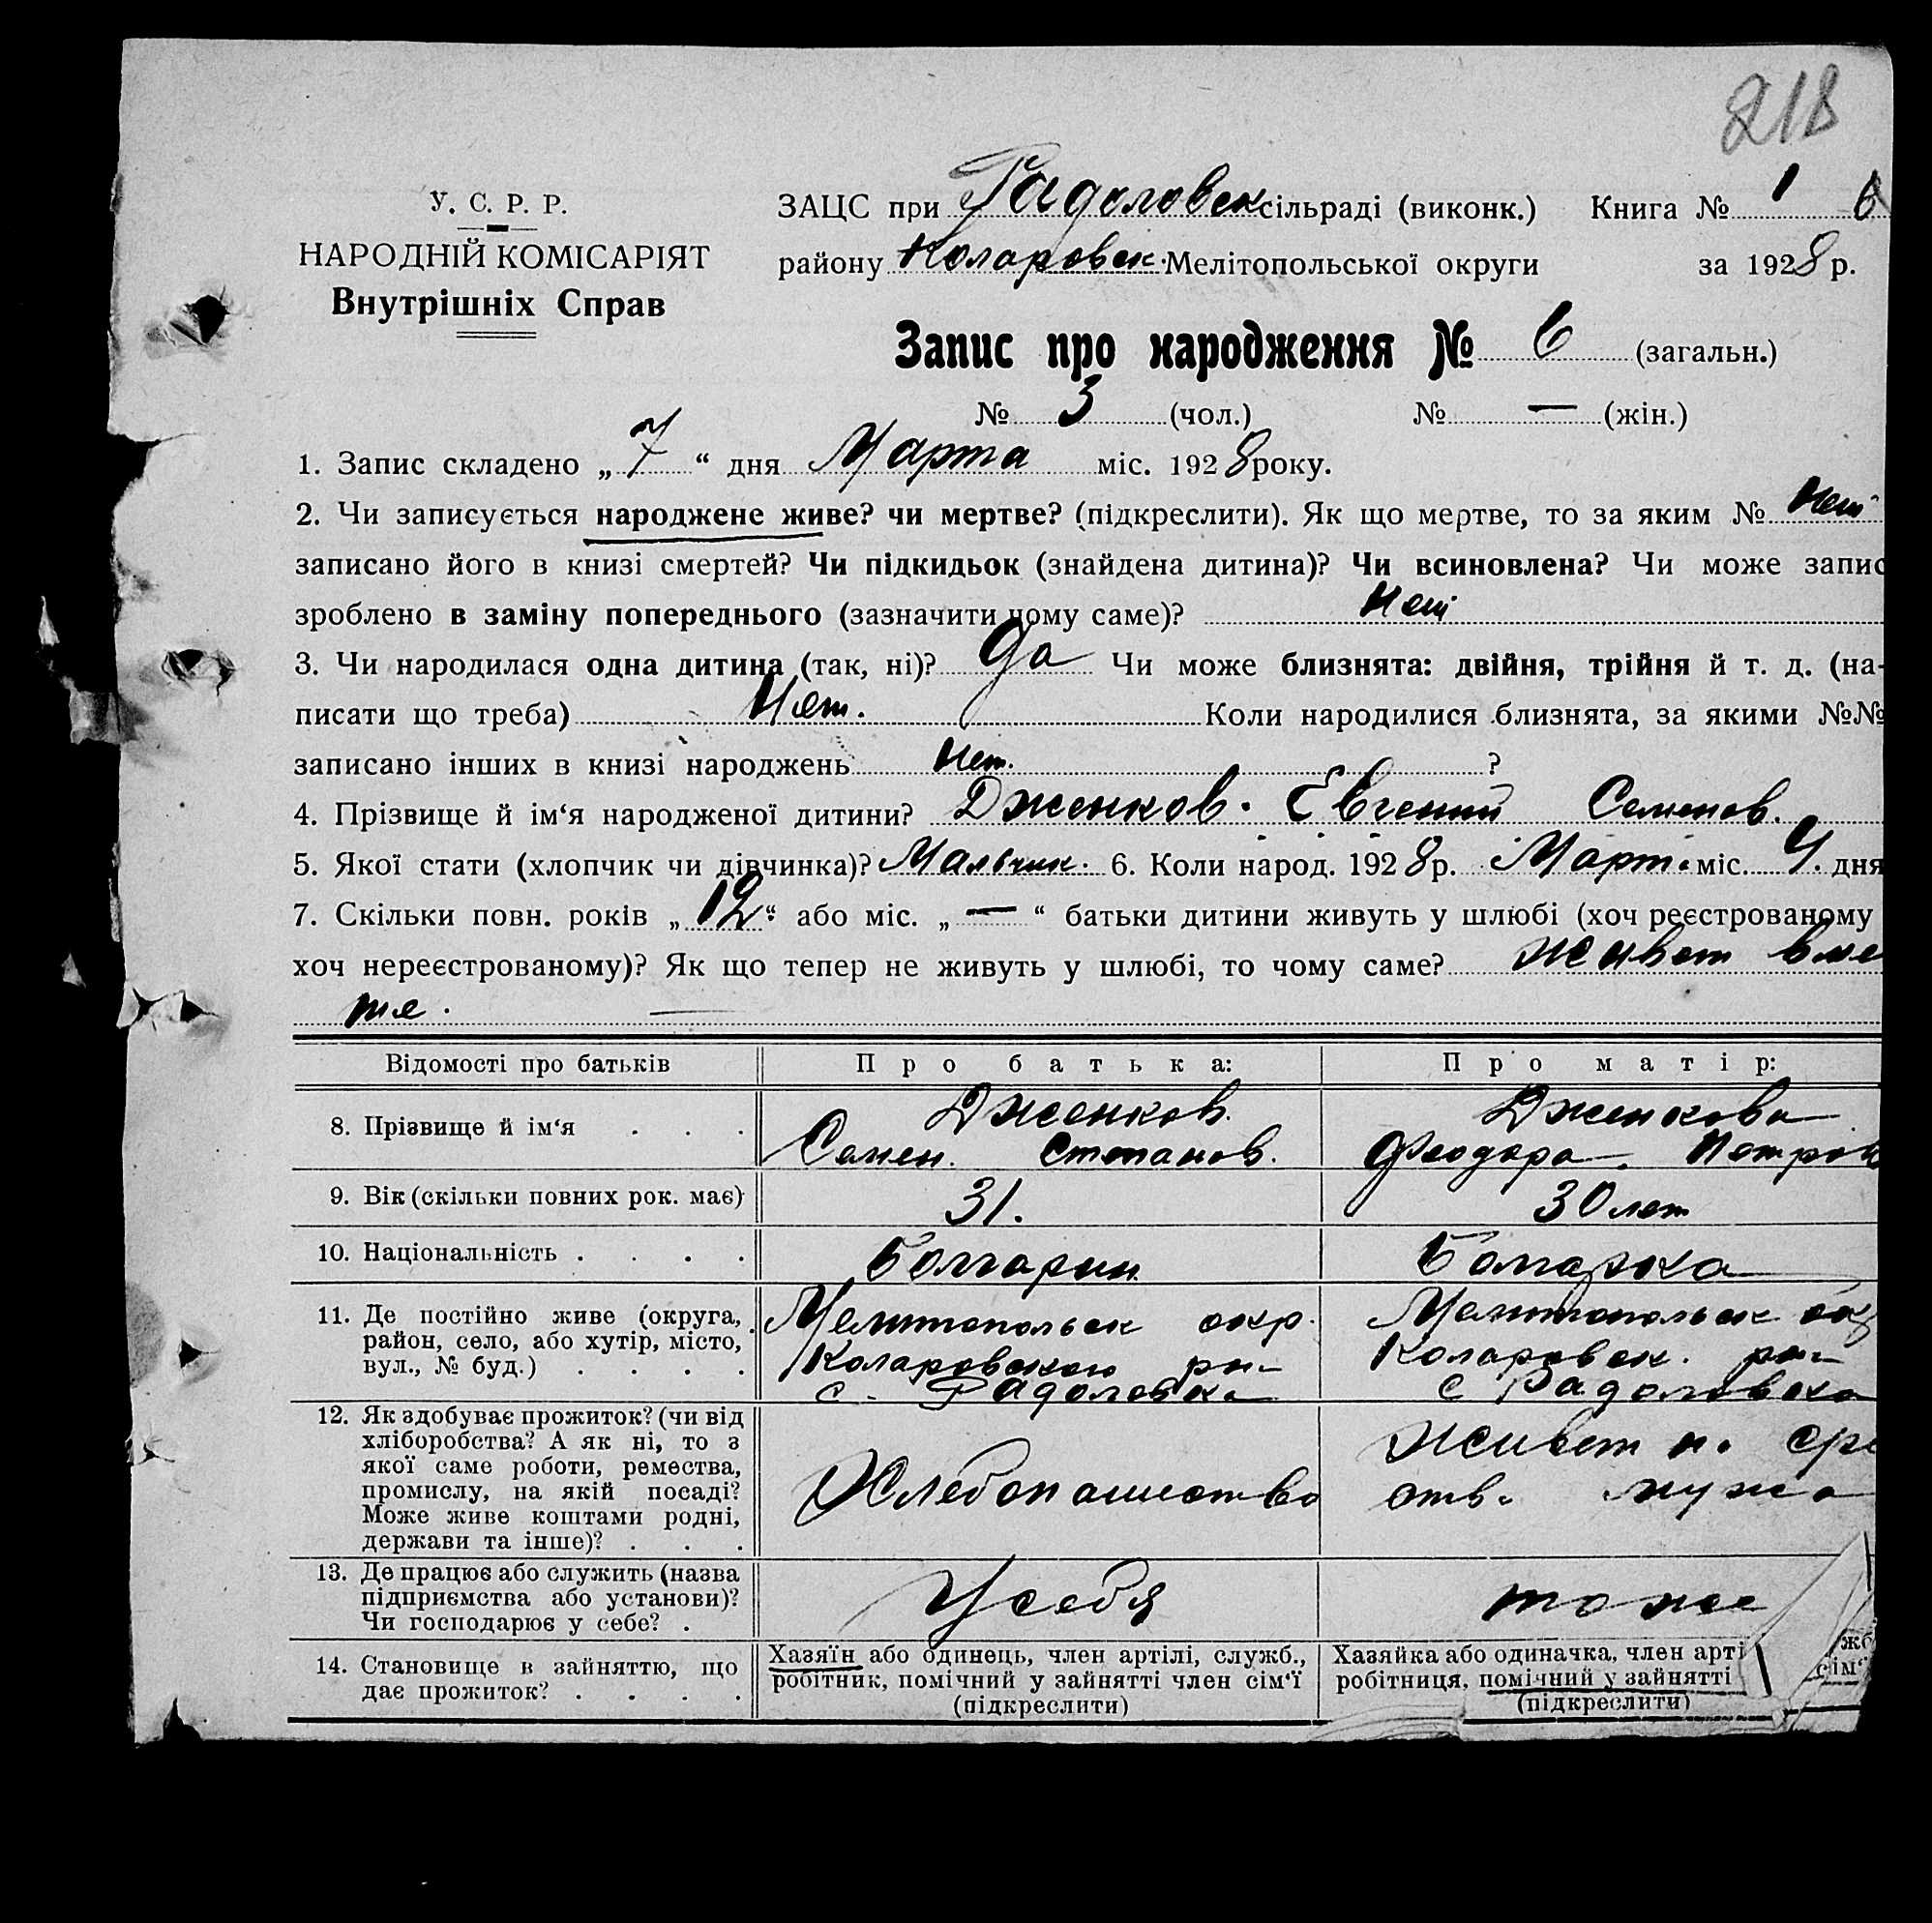 218
У. С. Р. Р.
НАРОДНІЙ КОМІСАРІЯТ
Внутрішніх Справ
ЗАЦС при Радоловск сільраді (виконк.) Книга № 1 6
району Коларовск. Мелітопольської округи за 1928 р.
Запис про народження № 6 (загальн.)
№ 3 (чол.) № — (жін.)
1. Запис складено „ 7 “ дня Марта міс. 1928 року.
2. Чи записується народжене живе? чи мертве? (підкреслити). Як що мертве, то за яким № Нет
записано його в книзі смертей? Чи підкидьок (знайдена дитина)? Чи всиновлена? Чи може запис
зроблено в заміну попереднього (зазначити чому саме)? Нет
3. Чи народилася одна дитина (так, ні)? Да Чи може близнята: двійня, трійня й т. д. (на-
писати що треба) Нет. Коли народилися близнята, за якими №№
записано інших в книзі народжень Нет. ?
4. Прізвище й ім‘я народженої дитини? Дженков. Евгений Семенов.
5. Якої стати (хлопчик чи дівчинка)? Мальчик. 6. Коли народ. 1928 р. Март. міс. 4. дня
7. Скільки повн. років „ 12 “ або міс. „ — “ батьки дитини живуть у шлюбі (хоч реєстрованому
хоч нереєстрованому)? Як що тепер не живуть у шлюбі, то чому саме? живет вме
те.
Відомості про батьків Про батька: Про матір:
8. Прізвище й ім‘я . . . Дженков. Семен. Степанов. Дженкова Феодора. Петров
9. Вік (скільки повних рок. має) 31. 30 лет
10. Національність . . . . Болгарин Болгарка
11. Де постійно живе (округа, Мелитопольск окр. Мелитопольск окр
район, село, або хутір, місто, Коларовского рн- Коларовск. рн-
вул., № буд.) . . . . с. Радоловка с Радоловка
12. Як здобуває прожиток? (чи від
хліборобства? А як ні, то з живет н. сре
якої саме роботи, ремества,
промислу, на якій посаді? Хлебопашество отв. мужа
Може живе коштами родні,
держави та інше)? . . .
13. Де працює або служить (назва
підприємства або установи)? У себя тоже
Чи господарює у себе? .
14. Становище в зайняттю, що Хазяїн або одинець, член артілі, служб., Хазяйка або одиначка, член арті жб
дає прожиток? . . . . робітник, помічний у зайнятті член сім‘ї робітниця, помічний у зайнятті сім‘
(підкреслити) (підкреслити)